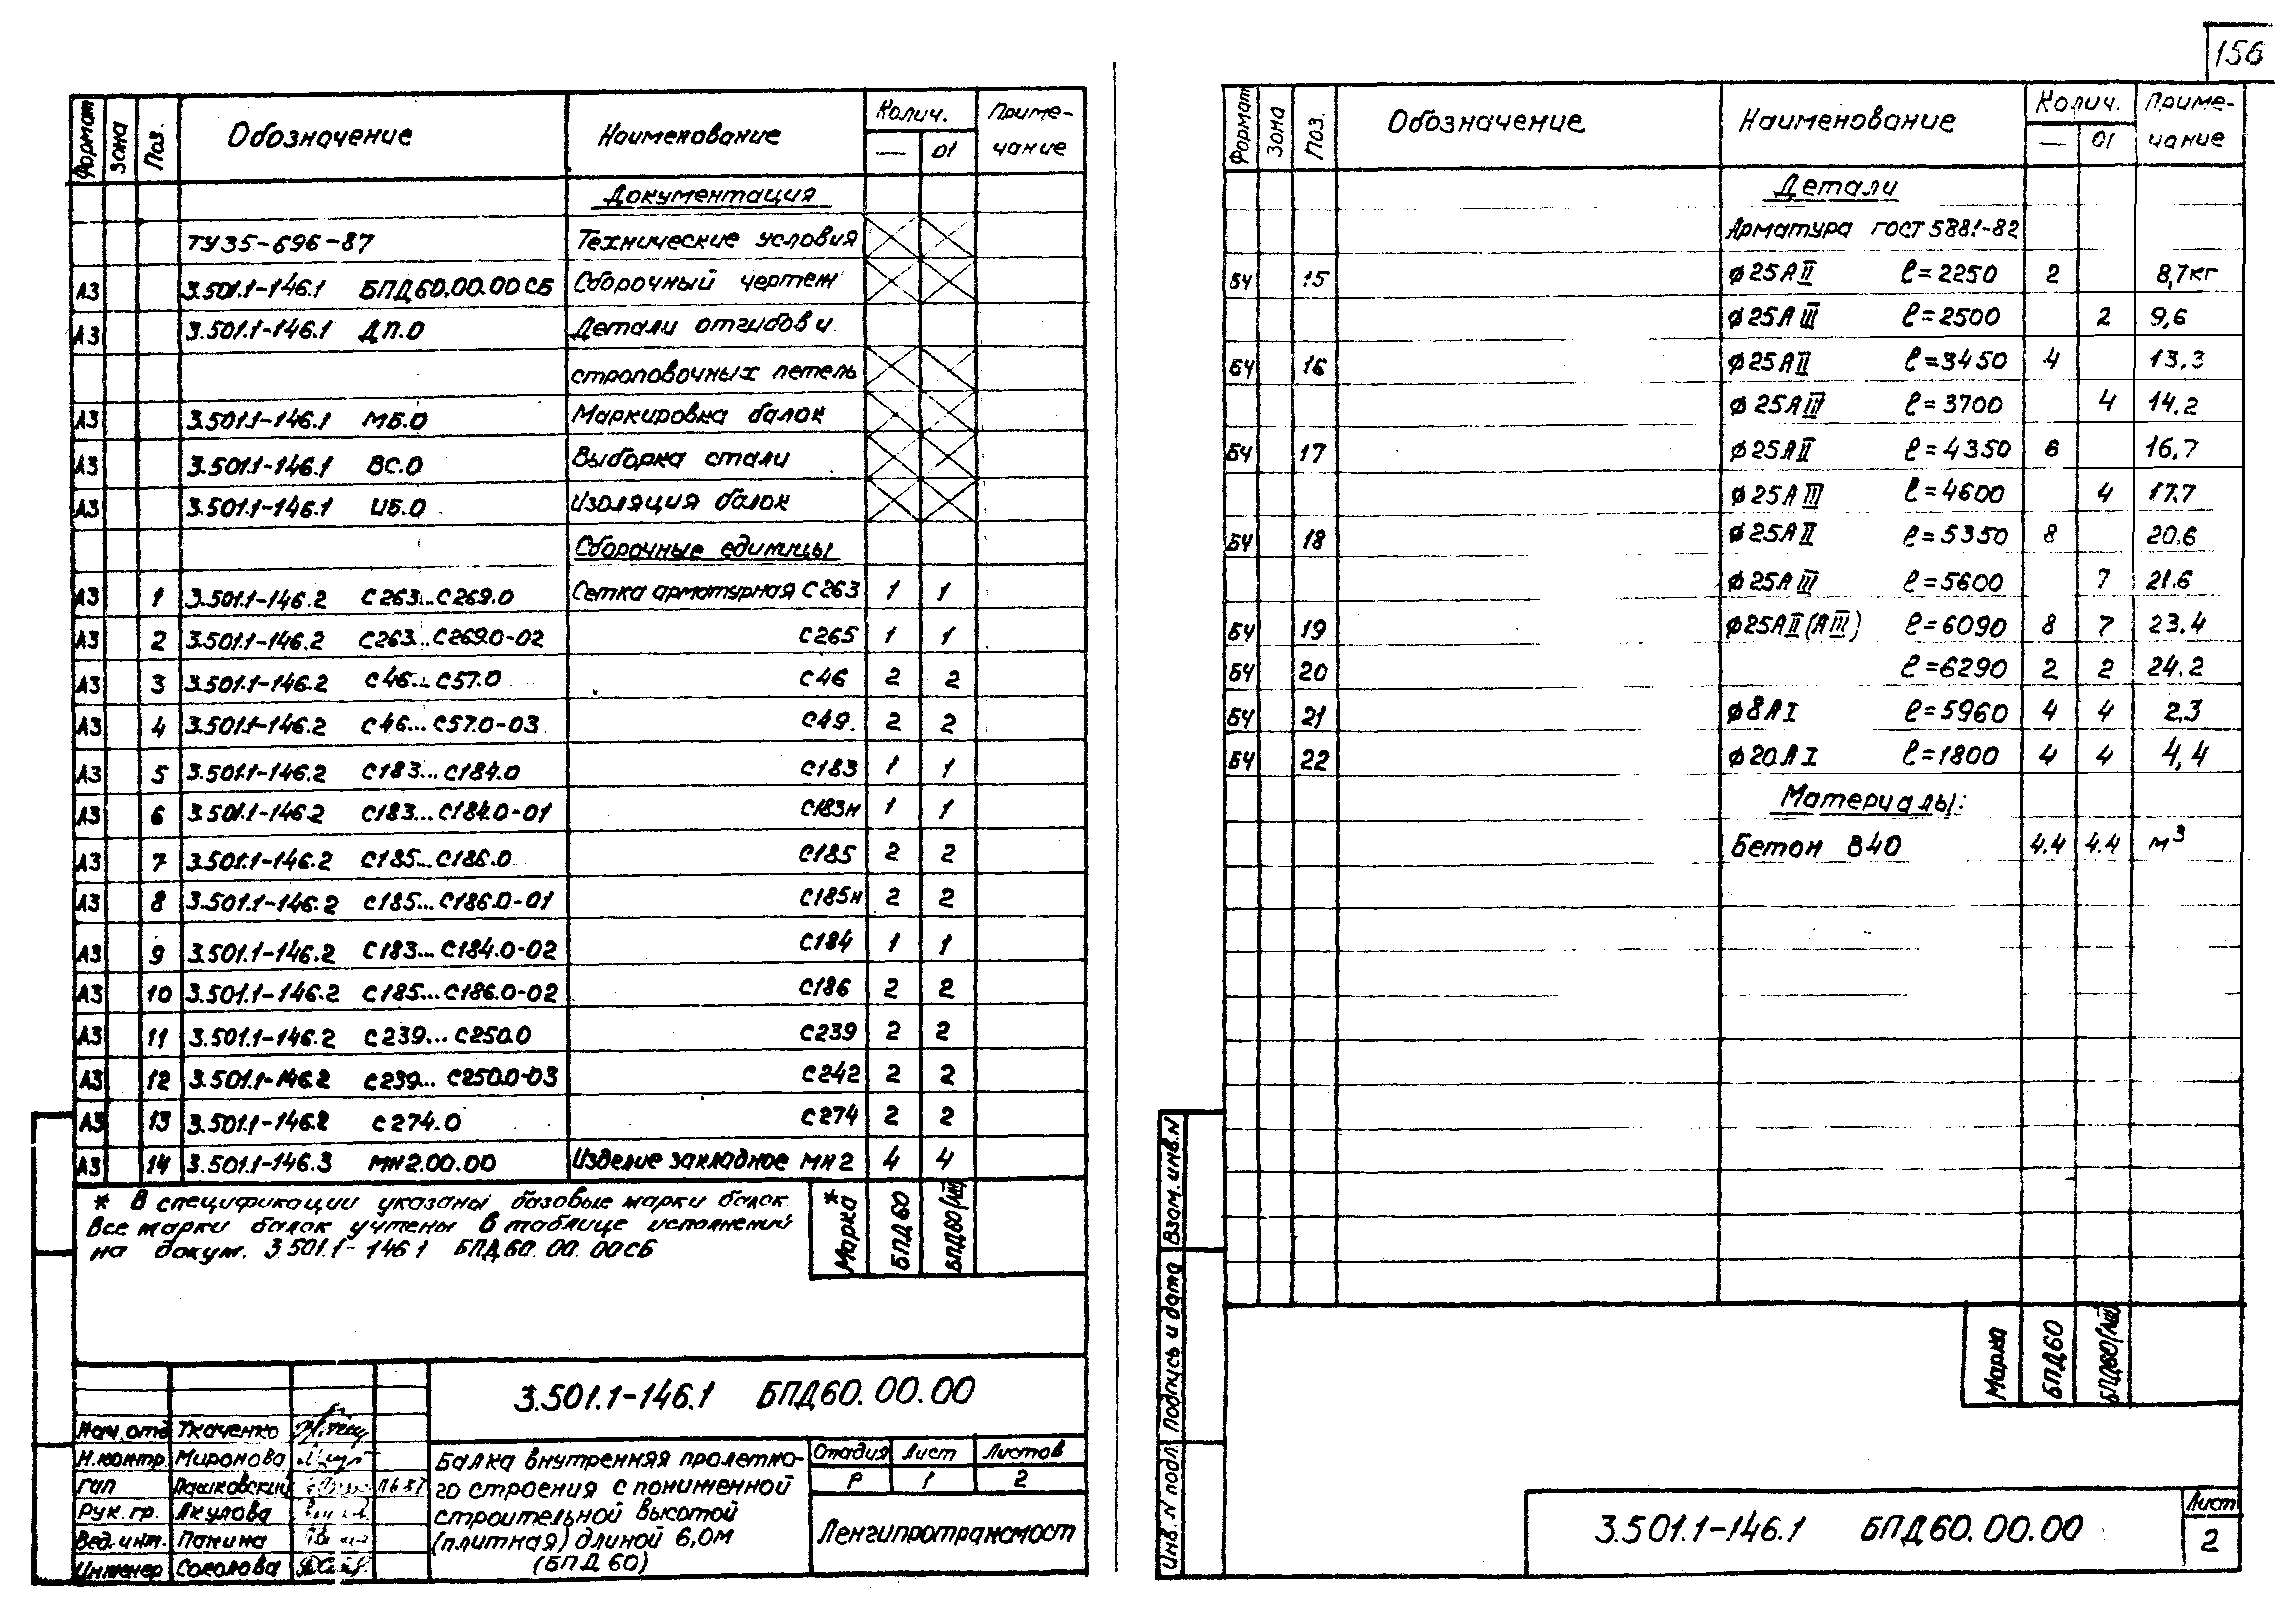 156
Формат Зона Поз. Обозначение Наименование Колич. Приме-
— 01 чание
Документация
ТУ35-696-87 Технические условия
А3 3.501.1-146.1 БПД60.00.00СБ Сборочный чертеж
А3 3.501.1-146.1 ДП.0 Детали отгибов и
строповочных петель
А3 3.501.1-146.1 МБ.0 Маркировка балок
А3 3.501.1-146.1 ВС.0 Выборка стали
А3 3.501.1-146.1 ИБ.0 Изоляция балок
Сборочные единицы
А3 1 3.501.1-146.2 С263...С269.0 Сетка арматурная С263 1 1
А3 2 3.501.1-146.2 С263...С269.0-02 С265 1 1
А3 3 3.501.1-146.2 С46...С57.0 С46 2 2
А3 4 3.501.1-146.2 С46...С57.0-03 С49. 2 2
А3 5 3.501.1-146.2 С183...С184.0 С183 1 1
А3 6 3.501.1-146.2 С183...С184.0-01 С183н 1 1
А3 7 3.501.1-146.2 С185...С186.0 С185 2 2
А3 8 3.501.1-146.2 С185...С186.0-01 С185н 2 2
А3 9 3.501.1-146.2 С183...С184.0-02 С184 1 1
А3 10 3.501.1-146.2 С185...С186.0-02 С186 2 2
А3 11 3.501.1-146.2 С239...С250.0 С239 2 2
А3 12 3.501.1-146.2 С239...С250.0-03 С242 2 2
А3 13 3.501.1-146.2 С274.0 С274 2 2
А3 14 3.501.1-146.3 МН2.00.00 Изделие закладное МН2 4 4
* В спецификации указаны базовые марки балок
Все марки балок учтены в таблице исполнений
на докум. 3.501.1-146.1 БПД60.00.00СБ
Марка * БПД60 БПД60(АIII)
3.501.1-146.1 БПД60.00.00
Нач.отд Ткаченко
Н.контр. Миронова
ГАП Пашковский
Рук.гр. Акулова
Вед.инж. Панина
Инженер Соколова
Балка внутренняя пролетно-
го строения с пониженной
строительной высотой
(плитная) длиной 6,0м
(БПД60)
Стадия Лист Листов
Р 1 2
Ленгипротрансмост
Формат Зона Поз. Обозначение Наименование Колич. Приме-
— 01 чание
Детали
Арматура ГОСТ 5781-82
БЧ 15 ⌀25АII ℓ=2250 2 8,7кг
⌀25АIII ℓ=2500 2 9,6
БЧ 16 ⌀25АII ℓ=3450 4 13,3
⌀25АIII ℓ=3700 4 14,2
БЧ 17 ⌀25АII ℓ=4350 6 16,7
⌀25АIII ℓ=4600 4 17,7
БЧ 18 ⌀25АII ℓ=5350 8 20,6
⌀25АIII ℓ=5600 7 21,6
БЧ 19 ⌀25АII(АIII) ℓ=6090 8 7 23,4
БЧ 20 ℓ=6290 2 2 24,2
БЧ 21 ⌀8АI ℓ=5960 4 4 2,3
БЧ 22 ⌀20АI ℓ=1800 4 4 4,4
Материалы:
Бетон В40 4.4 4.4 м³
Марка БПД60 БПД60(АIII)
Инв. N подл. Подпись и дата Взам.инв.N
3.501.1-146.1 БПД60.00.00
Лист
2